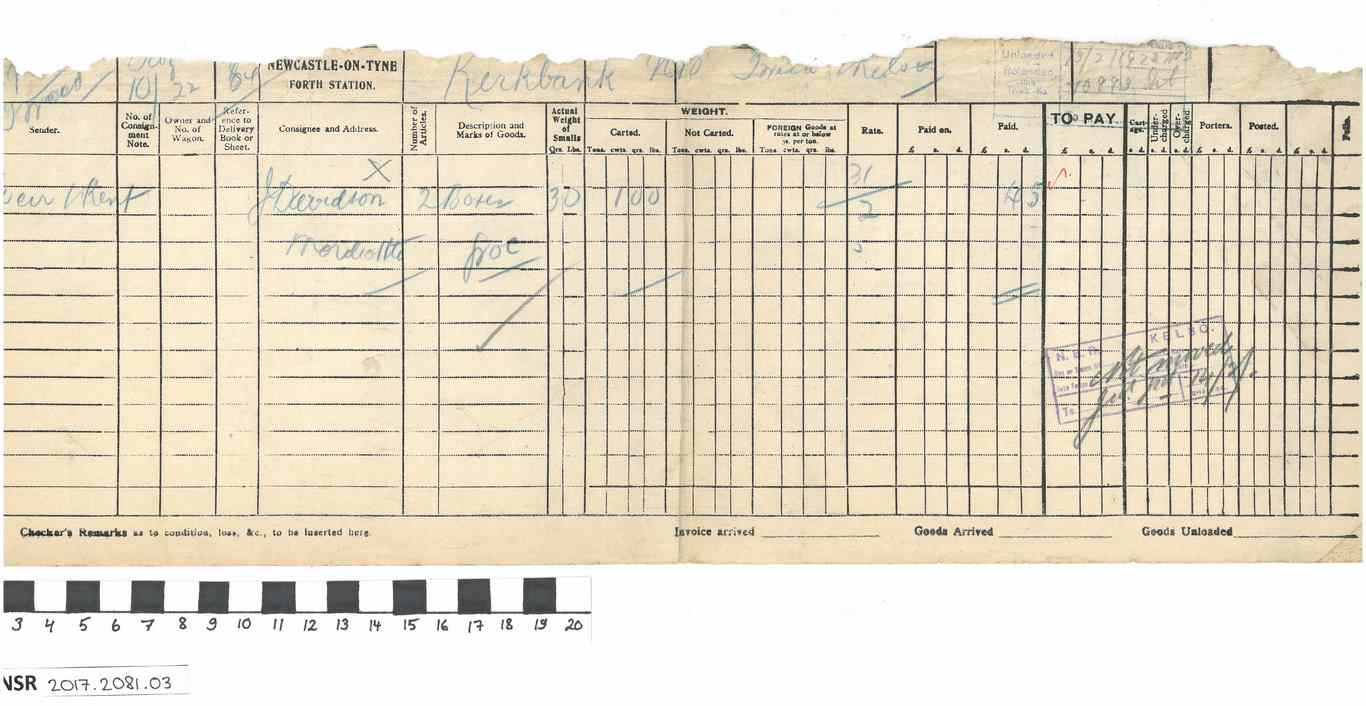 10/22 64
NEWCASTLE-ON-TYNE
FORTH STATION.
Kerkbank
Kelso
Unloaded
Sender.
No. of Consignment Note.
Owner and No. of Wagon.
Reference to Delivery Book or Sheet.
Consignee and Address.
Number of Articles.
Description and Marks of Goods.
Actual Weight of Smalls
Qrs. Lbs.
WEIGHT.
Carted.
Tons. cwts. qrs. lbs.
Not Carted.
Tons. cwts. qrs. lbs.
FOREIGN Goods at rates at or below per ton.
Tons cwts. qrs. lbs.
Rate.
Paid on.
£ s. d.
Paid.
£ s. d.
TO PAY.
£ s. d.
Cartage.
s. d.
Undercharged
s. d.
Overcharged
s. d.
Porters.
£ s. d.
Posted.
£ s. d.
£ s. d.
Folio.
X
J Davidson 2 Boxes 30 100 31/2 45
groc
N.E.R. KELSO.
Not moved
To
Checker's Remarks as to condition, loss, &c., to be inserted here.
Invoice arrived
Goods Arrived
Goods Unloaded
3 4 5 6 7 8 9 10 11 12 13 14 15 16 17 18 19 20
NSR 2017.2081.03